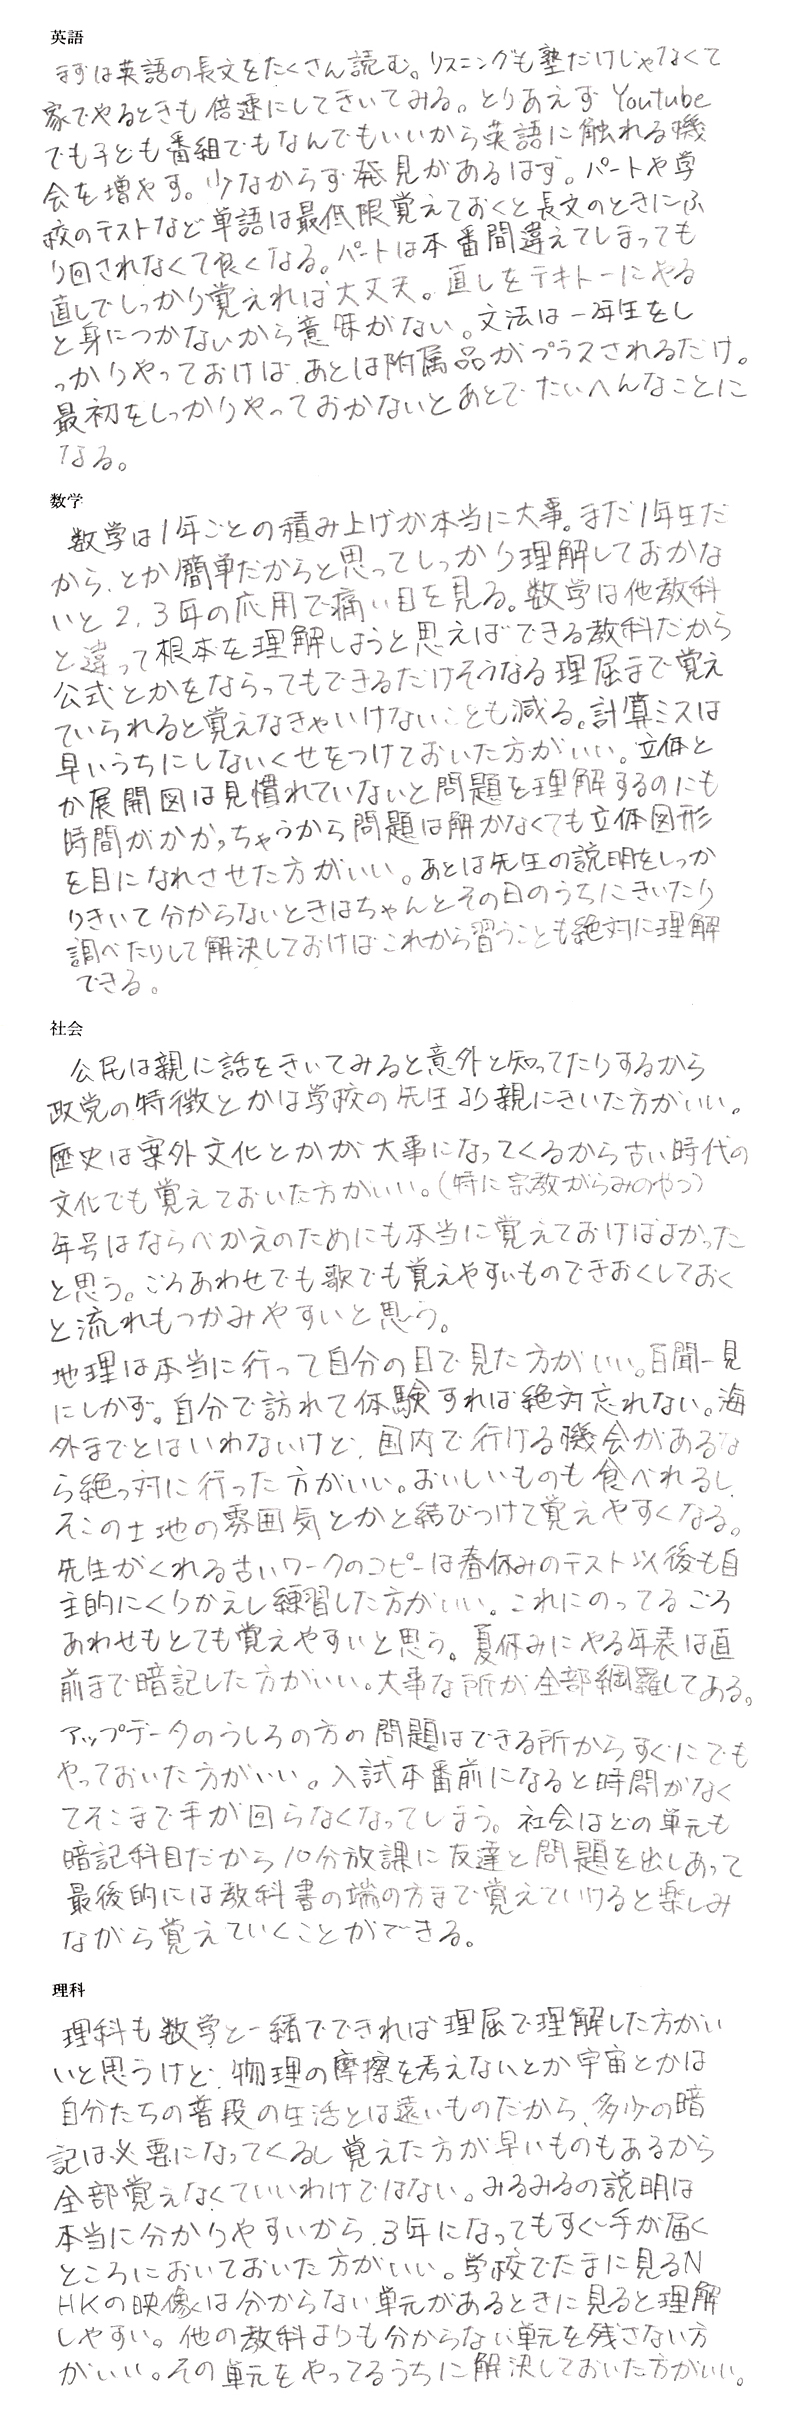 英語
まずは英語の長文をたくさん読む。リスニングも塾だけじゃなくて
家でやるときも倍速にしてきいてみる。とりあえずYoutube
でも子ども番組でもなんでもいいから英語に触れる機
会を増やす。少なからず発見があるはず。パートや学
校のテストなど単語は最低限覚えておくと長文のときにふ
り回されなくて良くなる。パートは本番間違えてしまっても
直しでしっかり覚えれば大丈夫。直しをテキトーにやる
と身につかないから意味がない。文法は一年生をし
っかりやっておけば、あとは附属品がプラスされるだけ。
最初をしっかりやっておかないとあとでたいへんなことに
なる。
数学
数学は1年ごとの積み上げが本当に大事。まだ1年生だ
から、とか簡単だからと思ってしっかり理解しておかな
いと2、3年の応用で痛い目を見る。数学は他教科
と違って根本を理解しようと思えばできる教科だから
公式とかをならってもできるだけそうなる理屈まで覚え
ていられると覚えなきゃいけないことも減る。計算ミスは
早いうちにしないくせをつけておいた方がいい。立体と
か展開図は見慣れていないと問題を理解するのにも
時間がかかっちゃうから問題は解かなくても立体図形
を目になれさせた方がいい。あとは先生の説明をしっか
りきいて分からないときはちゃんとその日のうちにきいたり
調べたりして解決しておけばこれから習うことも絶対に理解
できる。
社会
公民は親に話をきいてみると意外と知ってたりするから
政党の特徴とかは学校の先生より親にきいた方がいい。
歴史は案外文化とかが大事になってくるから古い時代の
文化でも覚えておいた方がいい。（特に宗教がらみのやつ）
年号はならべかえのためにも本当に覚えておけばよかった
と思う。ごろあわせでも歌でも覚えやすいものできおくしておく
と流れもつかみやすいと思う。
地理は本当に行って自分の目で見た方がいい。百聞一見
にしかず。自分で訪れて体験すれば絶対忘れない。海
外までとはいわないけど、国内で行ける機会があるな
ら絶っ対に行った方がいい。おいしいものも食べれるし、
そこの土地の雰囲気とかと結びつけて覚えやすくなる。
先生がくれる古いワークのコピーは春休みのテスト以後も自
主的にくりかえし練習した方がいい。これにのってるごろ
あわせもとても覚えやすいと思う。夏休みにやる年表は直
前まで暗記した方がいい。大事な所が全部網羅してある。
アップデータのうしろの方の問題はできる所からすぐにでも
やっておいた方がいい。入試本番前になると時間がなく
てそこまで手が回らなくなってしまう。社会はどの単元も
暗記科目だから10分放課に友達と問題を出しあって
最後的には教科書の端の方まで覚えていけると楽しみ
ながら覚えていくことができる。
理科
理科も数学と一緒でできれば理屈で理解した方がい
いと思うけど、物理の摩擦を考えないとか宇宙とかは
自分たちの普段の生活とは遠いものだから、多少の暗
記は必要になってくるし覚えた方が早いものもあるから
全部覚えなくていいわけではない。みるみるの説明は
本当に分かりやすいから、3年になってもすぐ手が届く
ところにおいておいた方がいい。学校でたまに見るN
HKの映像は分からない単元があるときに見ると理解
しやすい。他の教科よりも分からない単元を残さない方
がいい。その単元をやってるうちに解決しておいた方がいい。